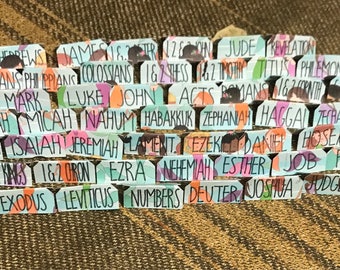 HEBREWS JAMES 1 & 2 PETER 1 & 2 & 3 JOHN JUDE REVELATION
PHILIPPIANS COLOSSIANS 1 & 2 THESS 1 & 2 TIMOTHY TITUS PHILEMON
MARK LUKE JOHN ACTS ROMANS 1 & 2 CORINTH
MICAH NAHUM HABAKKUK ZEPHANIAH HAGGAI
ISAIAH JEREMIAH LAMENT EZEK DANIEL HOSE
KINGS 1 & 2 CHRON EZRA NEHEMIAH ESTHER JOB
EXODUS LEVITICUS NUMBERS DEUTER JOSHUA JUDGE